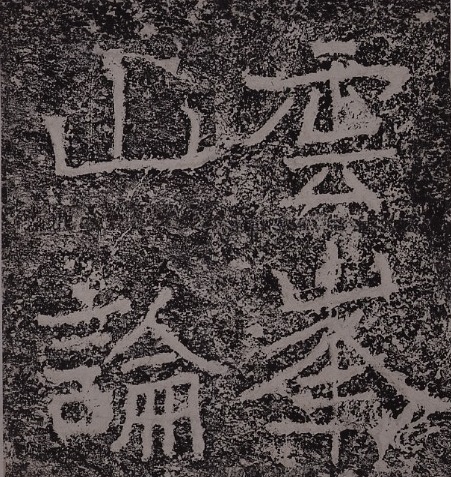 雲峯
山論